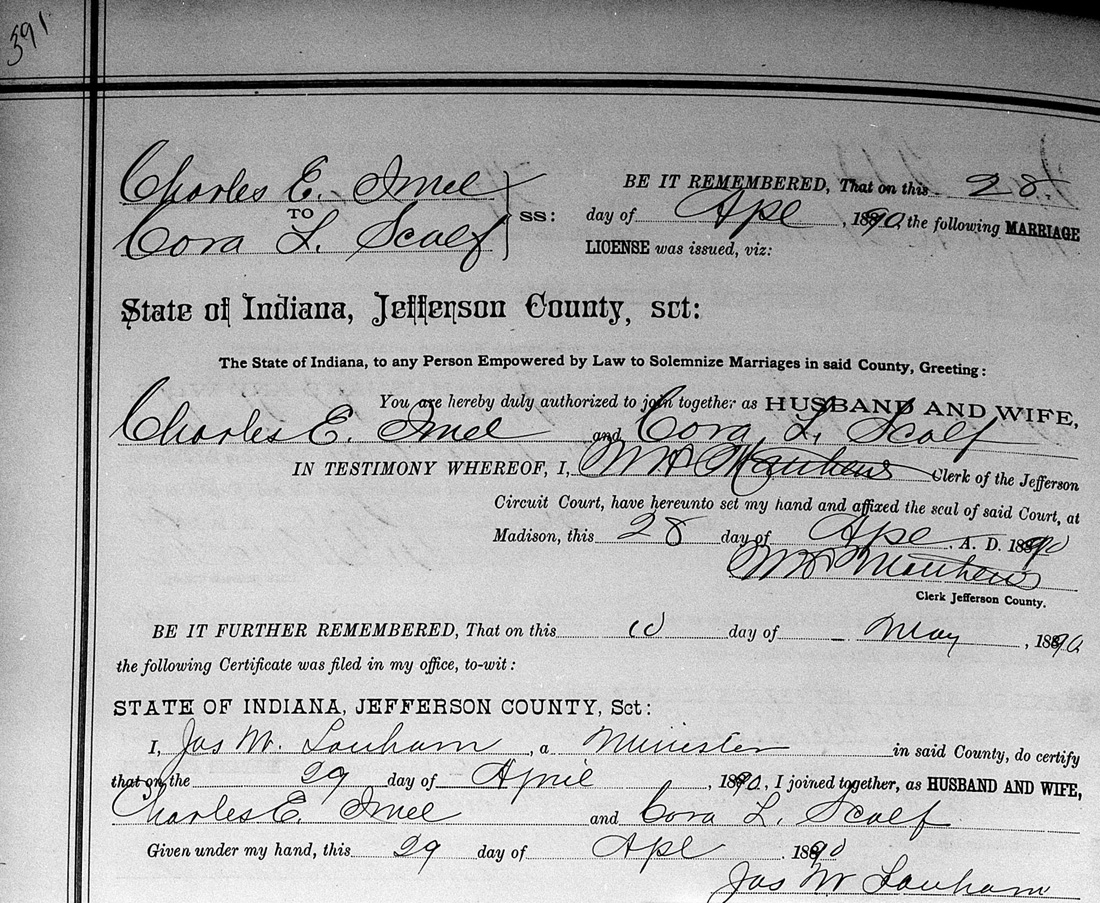 391
Charles E. Imel
TO
Cora L. Scalf
SS:
BE IT REMEMBERED, That on this 28
day of Apl, 1890, the following MARRIAGE
LICENSE was issued, viz:
State of Indiana, Jefferson County, sct:
The State of Indiana, to any Person Empowered by Law to Solemnize Marriages in said County, Greeting:
You are hereby duly authorized to join together as HUSBAND AND WIFE,
Charles E. Imel and Cora L. Scalf
IN TESTIMONY WHEREOF, I, Matthews Clerk of the Jefferson
Circuit Court, have hereunto set my hand and affixed the seal of said Court, at
Madison, this 28 day of Apl, A. D. 1890
Matthews
Clerk Jefferson County.
BE IT FURTHER REMEMBERED, That on this 10 day of May, 1890
the following Certificate was filed in my office, to-wit:
STATE OF INDIANA, JEFFERSON COUNTY, Sct:
I, Jas M. Lanham, a Minister in said County, do certify
that on the 29 day of April, 1890, I joined together, as HUSBAND AND WIFE,
Charles E. Imel and Cora L. Scalf
Given under my hand, this 29 day of Apl 1890
Jas M Lanham